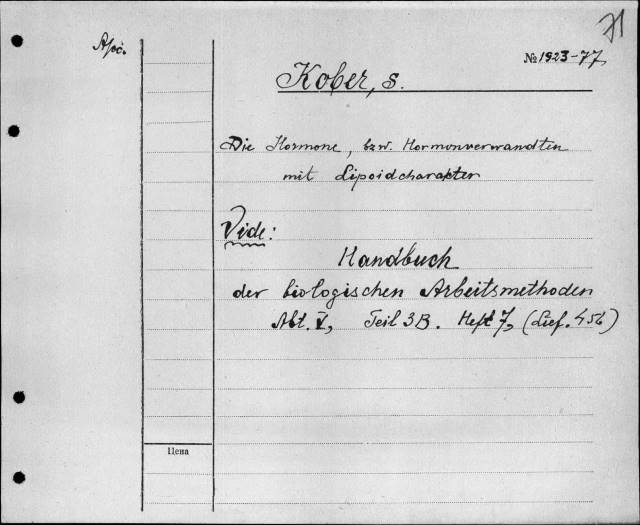 71
№ 1923-77
Kober, S.
Die Hormone, bzw. Hormonverwandten
mit Lipoidcharakter
Vide:
Handbuch
der biologischen Arbeitsmethoden
Abt. V, Teil 3B. Heft 7, (Lief. 456)
Цена